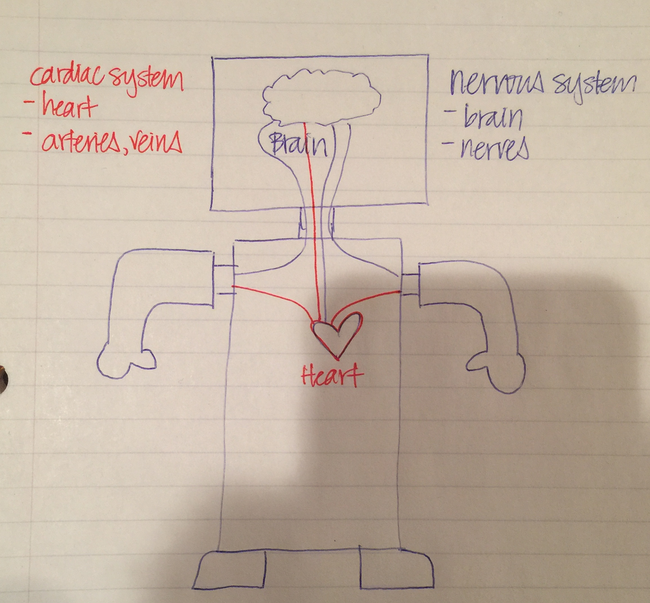 cardiac system
- heart
- arteries, veins
nervous system
- brain
- nerves
Brain
Heart